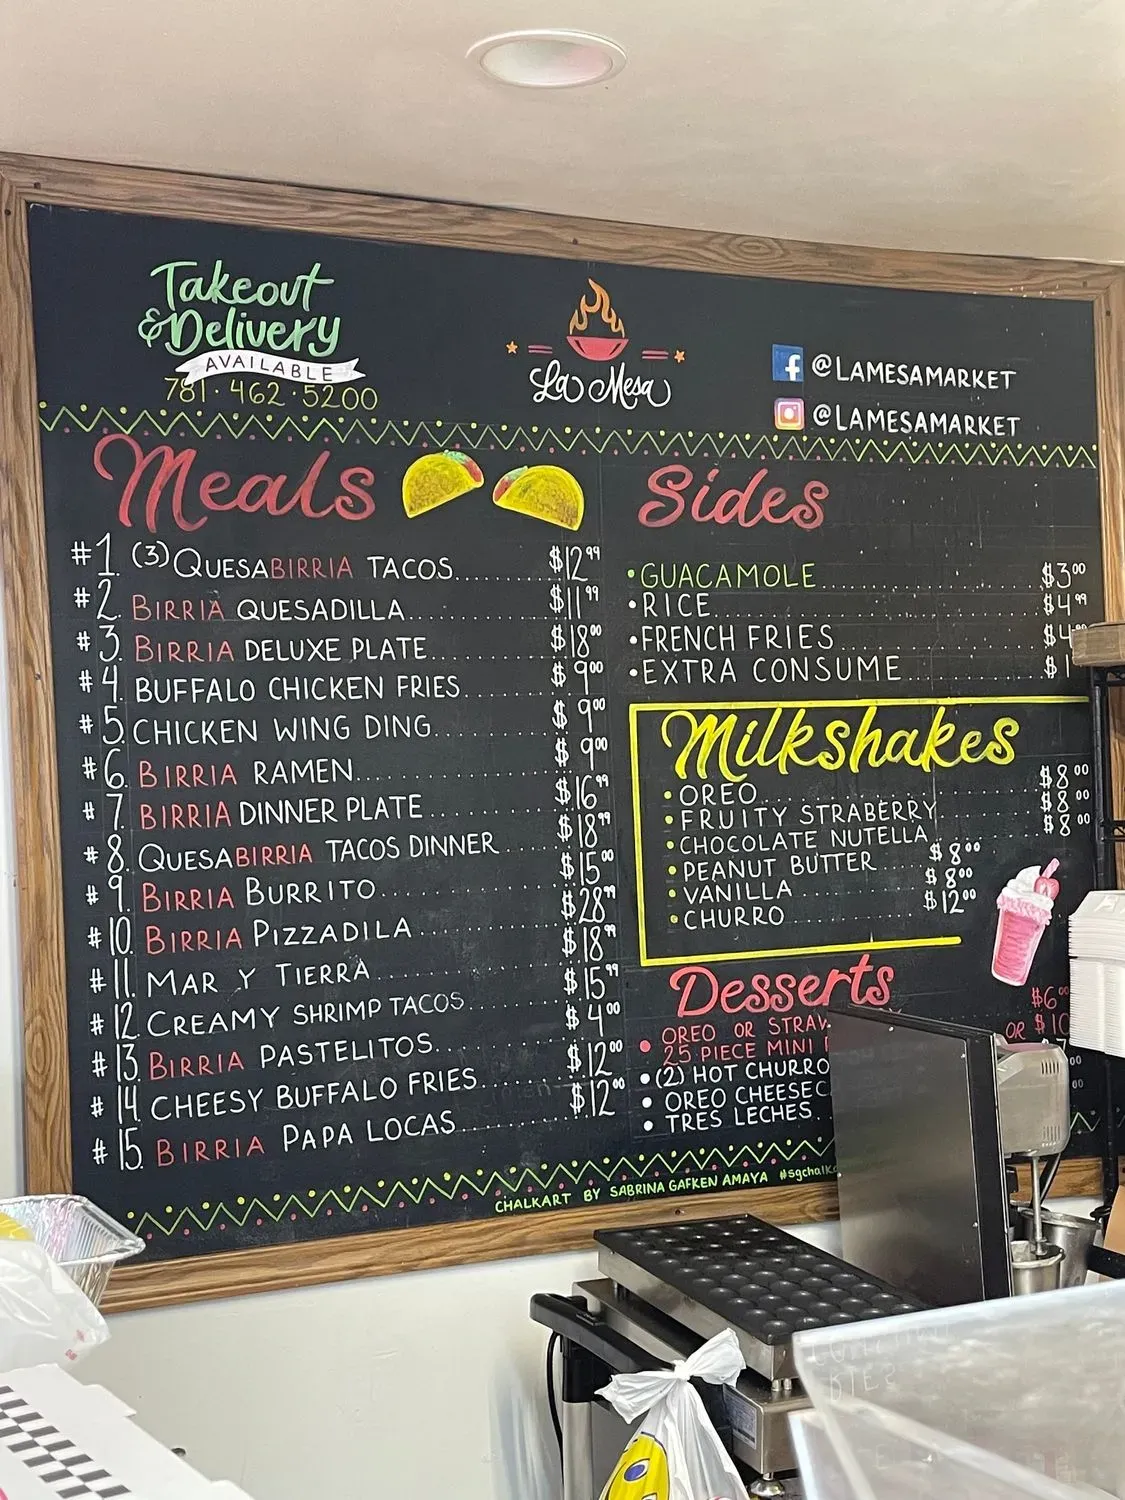 Takeout
& Delivery
AVAILABLE
781·462·5200
La Mesa
@LAMESAMARKET
@LAMESAMARKET
Meals
#1. (3) QUESABIRRIA TACOS $12.99
#2. BIRRIA QUESADILLA $11.99
#3. BIRRIA DELUXE PLATE $18.00
#4. BUFFALO CHICKEN FRIES $9.00
#5. CHICKEN WING DING $9.00
#6. BIRRIA RAMEN $9.00
#7. BIRRIA DINNER PLATE $16.99
#8. QUESABIRRIA TACOS DINNER $18.99
#9. BIRRIA BURRITO $15.00
#10. BIRRIA PIZZADILA $28.99
#11. MAR Y TIERRA $18.99
#12. CREAMY SHRIMP TACOS $15.99
#13. BIRRIA PASTELITOS $4.00
#14. CHEESY BUFFALO FRIES $12.00
#15. BIRRIA PAPA LOCAS $12.00
Sides
•GUACAMOLE $3.00
•RICE $4.99
•FRENCH FRIES $4
•EXTRA CONSUME $1
Milkshakes
•OREO $8.00
•FRUITY STRABERRY $8.00
•CHOCOLATE NUTELLA $8.00
•PEANUT BUTTER $8.00
•VANILLA $8.00
•CHURRO $12.00
Desserts
•OREO OR STRAW $6
25 PIECE MINI OR $10
•(2) HOT CHURRO
•OREO CHEESEC
•TRES LECHES
CHALKART BY SABRINA GAFKEN AMAYA #sgchalk